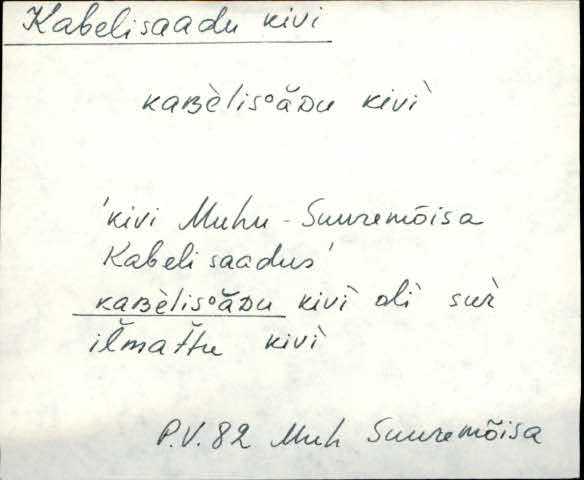 Kabelisaadu kivi
kaʙèlisoăᴅu kivì
'kivi Muhu-Suuremõisa
Kabelisaadus'
kaʙèlisoăᴅu kivì oli suŕ
ilmattu kivì
P.V. 82 Muh Suuremõisa